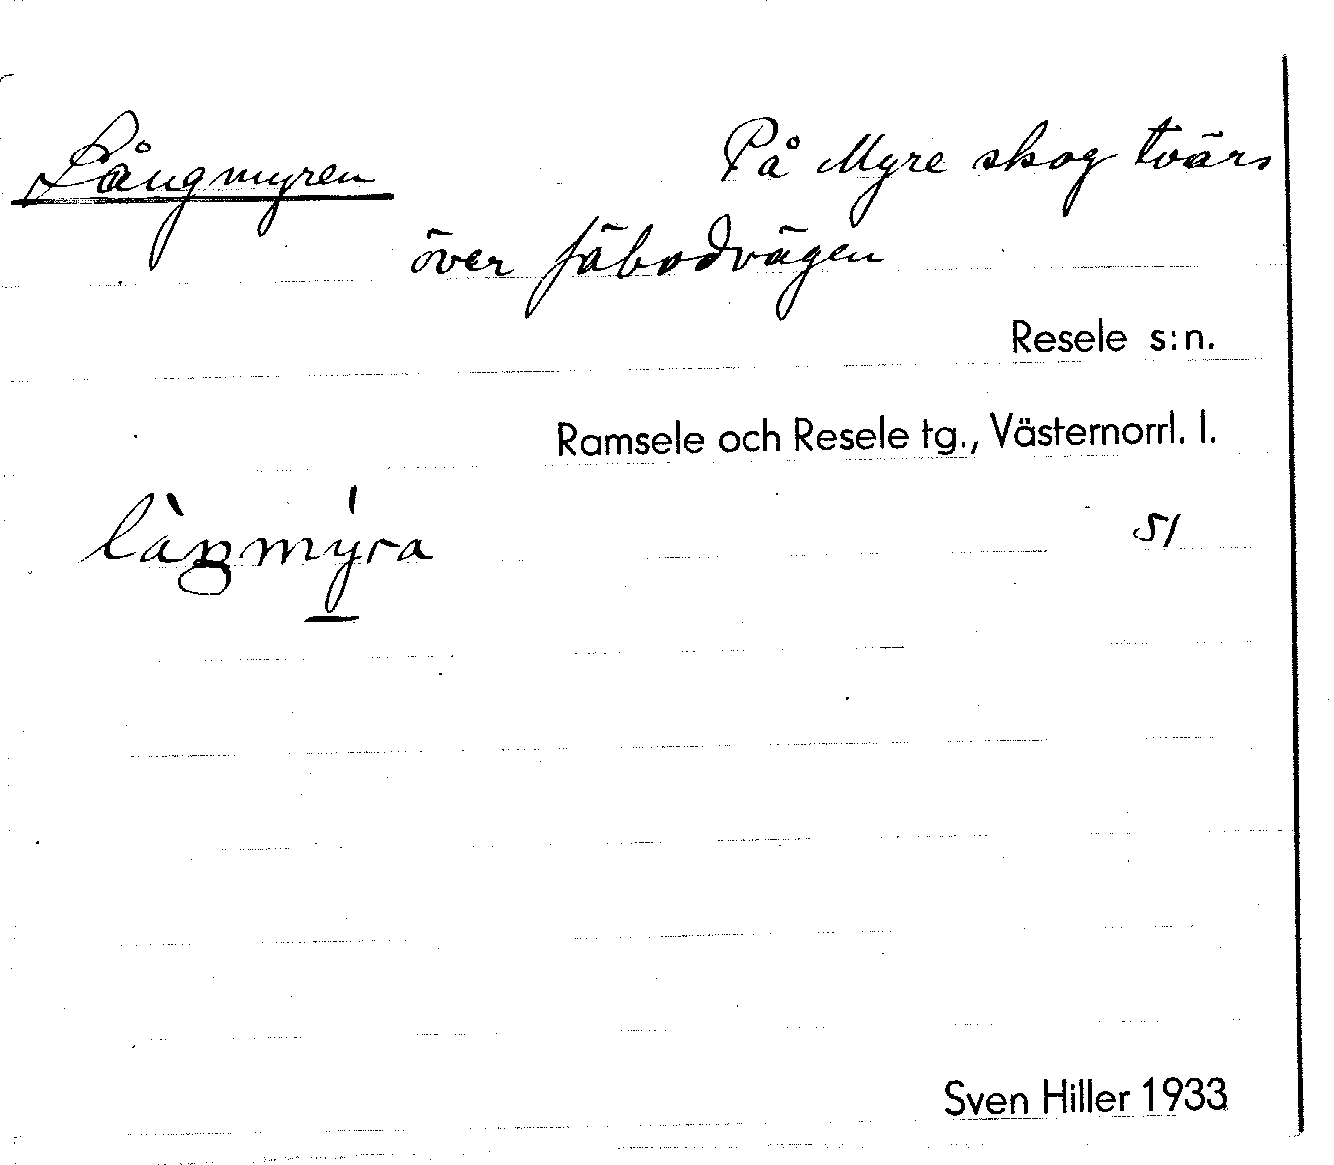 Långmyren På Myre skog tvärs
över fäbodvägen
Resele s:n.
Ramsele och Resele tg., Västernorrl. l.
51
Sven Hiller 1933